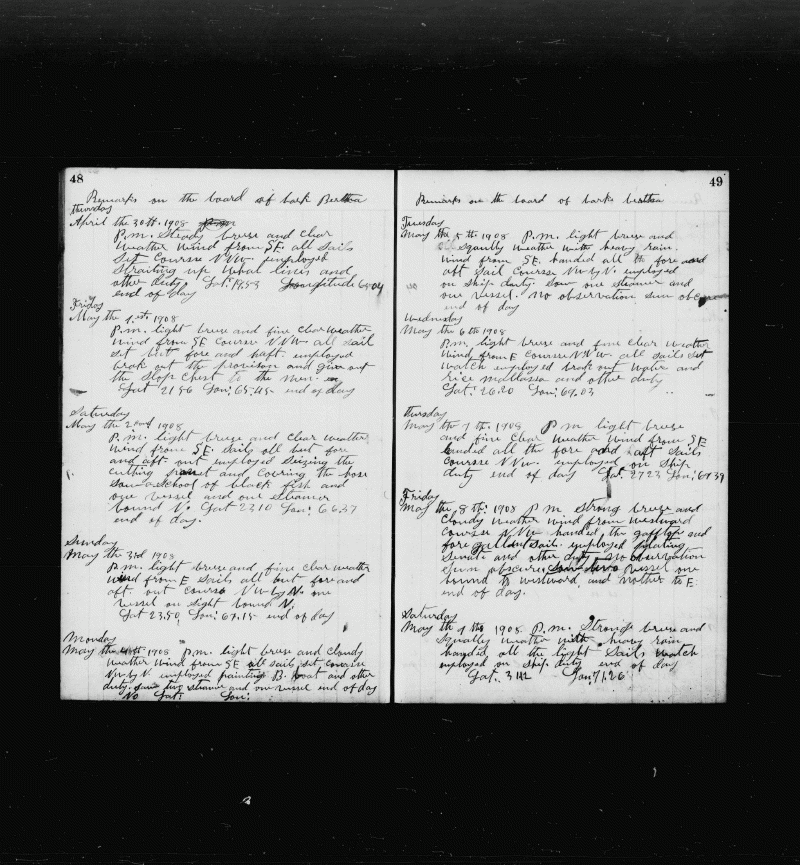 48
Remarks on the board of bark Bertha
thursday
April the 30th. 1908
P.m. Steady breese and clear
weather wind from SE. all sails
set Course NNW employed
straiting up whal lines and
other duty Lat. 19,53 Longitude 64,04
end of day
Friday
May the 1st 1908
P.m. light breese and fine clar weather
wind from SE Course NNW all sail
set but fore and haft. employed
brok out the provison and give out
the Slop Chest to the men
Lat 21.56 Lon: 65.45 end of day
Saturday
May the 2nd 1908
P.m. light breese and clear weather
wind from SE. Sails all but fore
and aft out employed Seizing the
cutting and Covring the bose
Saw a School of black fish and
one vessel and one Steamer
bound N. Lat 23.10 Lon: 66.37
end of day.
Sunday
May the 3rd 1908
P.m. light breese and fine clear weather
wind from E Sails all but fore and
aft. out Course NW by N. one
vessel on sight bound N.
Lat 23.50 Lon: 67.15 end of day
Monday
May the 4th 1908 P.m. light breese and Cloudy
weather wind from SE all sails set course
NW by N. employed painting B. boat and other
duty. saw two steamer and one vessel end of day
No Lat: Lon:
49
Remarks on the board of barks bertha
Tuesday
May the 5th 1908 P.m. light breese and
squally weather with heavy rain.
wind from SE. handed all the fore and
aft Sail Course NW by N. employed
on ship duty. Saw one steamer and
one vessel. no observation sun obscure
end of day
Wednesday
May the 6th 1908
P.m. light breese and fine clear weather
Wind from E Course NNW. all sails set
watch employed brok out water and
rice mollassa and other duty
Lat: 26.20 Lon: 69.03
thursday
May the 7th 1908 P m light breese
and fine Clear weather wind from SE
handed all the fore and haft Sails
Course NNw. employed on ship
duty end of day Lat: 27 23 Lon: 69 39
Friday
May the 8th: 1908 P m. Strong breese and
Cloudy weather wind from westward
Course NNW handed the gafftop sail
fore Sail employed
and other duty, no observation
Sun obscure, Saw two vessel one
bound to westward, and nother to E.
end of day.
Saturday
May the 9 th 1908 P.m. Strong breese and
Squally weather with heavy rain
handed all the light Sails watch
employed on ship duty end of day
Lat. Lon: 71.26